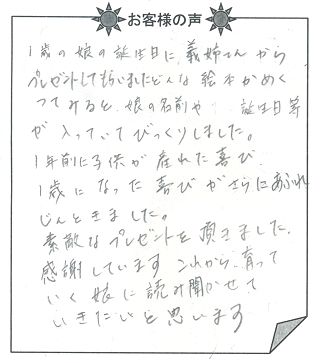 お客様の声
1歳の娘の誕生日に、義姉さんから
プレゼントしてもらいました。どんな絵本かめく
ってみると、娘の名前や 誕生日等
が入っていてびっくりしました。
1年前に子供が産れた喜び、
1歳になった喜びがさらにあふれ
じんときました。
素敵なプレゼントを頂きました。
感謝しています これから、育って
いく娘に読み聞かせて
いきたいと思います